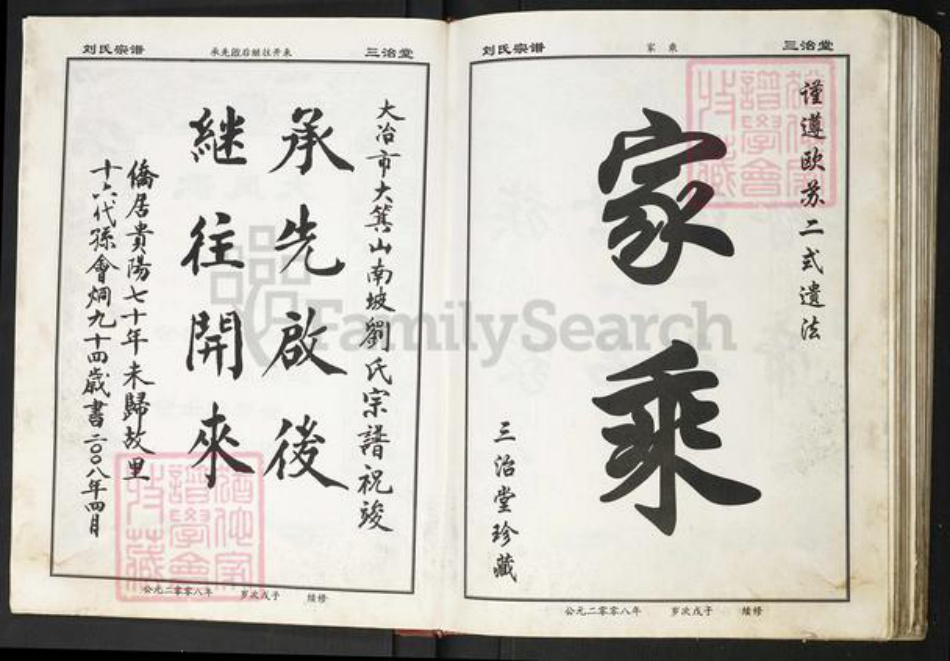 三治堂
家乘
刘氏宗谱
谨遵欧苏二式遺法
家乘
三治堂珍藏
公元二零零八年 岁次戊子 续修
三治堂
承先啟后继往开来
刘氏宗谱
大冶市大箕山南坡劉氏宗譜祝竣
承先啟後
継往開來
僑居貴陽七十年未歸故里
十六代孫會炯九十四歲書二〇〇八年四月
公元二零零八年 岁次戊子 续修
FamilySearch